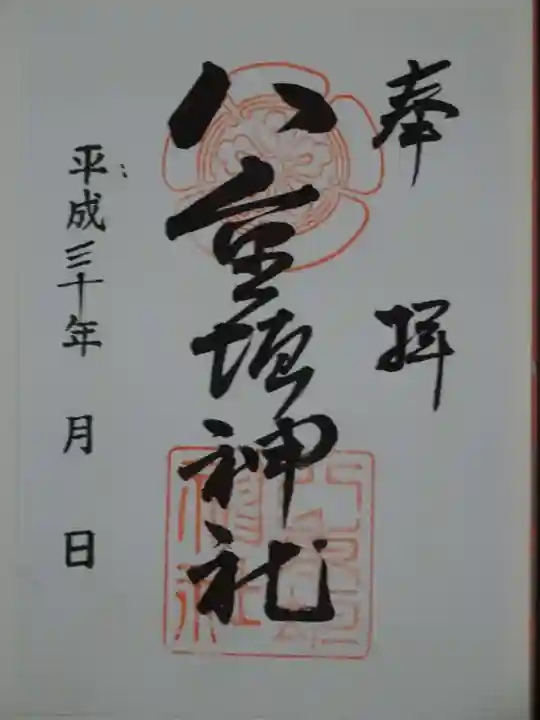 奉拝
八重垣神社
平成三十年 月 日